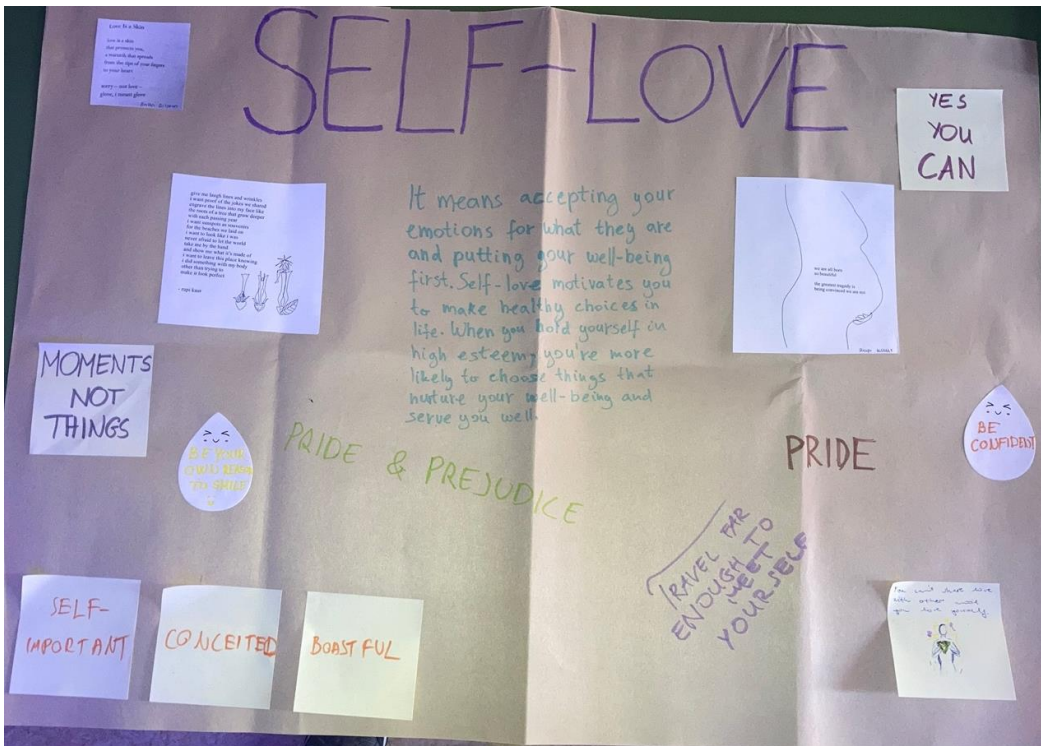 SELF-LOVE
Love Is a Skin
love is a skin
that protects you,
a warmth that spreads
from the tips of your fingers
to your heart
sorry – not love –
glove, i meant glove
YES
YOU
CAN
give me laugh lines and wrinkles
i want proof of the jokes we shared
engrave the lines into my face like
the roots of a tree that grow deeper
with each passing year
i want sunspots as souvenirs
for the beaches we laid on
i want to look like i was
never afraid to let the world
take me by the hand
and show me what it's made of
i want to leave this place knowing
i did something with my body
other than trying to
make it look perfect
- rupi kaur
It means accepting your
emotions for what they are
and putting your well-being
first. Self-love motivates you
to make healthy choices in
life. When you hold yourself in
high esteem, you're more
likely to choose things that
nurture your well-being and
serve you well.
we are all born
so beautiful
the greatest tragedy is
being convinced we are not
MOMENTS
NOT
THINGS
BE YOUR
OWN REASON
TO SMILE
PRIDE & PREJUDICE
PRIDE
BE
CONFIDENT
TRAVEL FAR
ENOUGH TO
MEET
YOURSELF
SELF-
IMPORTANT
CONCEITED
BOASTFUL
You can't
with other
you love yourself